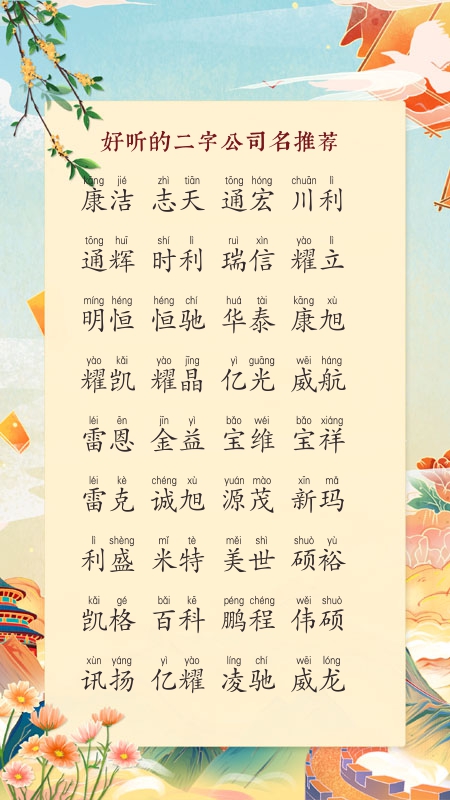 好听的二字公司名推荐
kāng jié zhì tiān tōng hóng chuān lì
康洁 志天 通宏 川利
tōng huī shí lì ruì xìn yào lì
通辉 时利 瑞信 耀立
míng héng héng chí huá tài kāng xù
明恒 恒驰 华泰 康旭
yào kǎi yào jīng yì guāng wēi háng
耀凯 耀晶 亿光 威航
léi ēn jīn yì bǎo wéi bǎo xiáng
雷恩 金益 宝维 宝祥
léi kè chéng xù yuán mào xīn mǎ
雷克 诚旭 源茂 新玛
lì shèng mǐ tè měi shì shuò yù
利盛 米特 美世 硕裕
kǎi gé bǎi kē péng chéng wěi shuò
凯格 百科 鹏程 伟硕
xùn yáng yì yào líng chí wēi lóng
讯扬 亿耀 凌驰 威龙